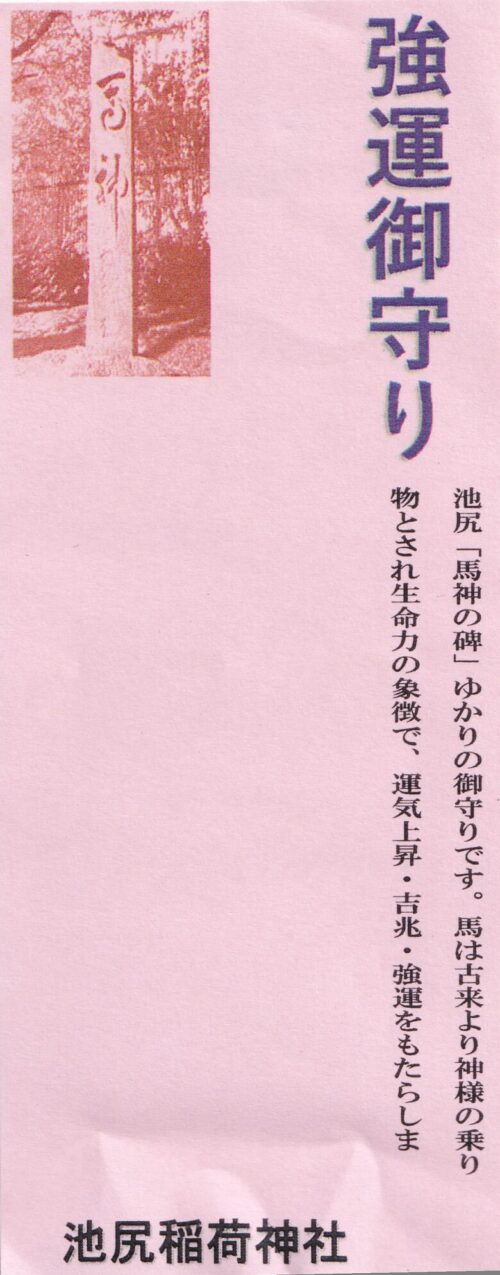 強運御守り
池尻「馬神の碑」ゆかりの御守りです。馬は古来より神様の乗り
物とされ生命力の象徴で、運気上昇・吉兆・強運をもたらしま
馬神
池尻稲荷神社